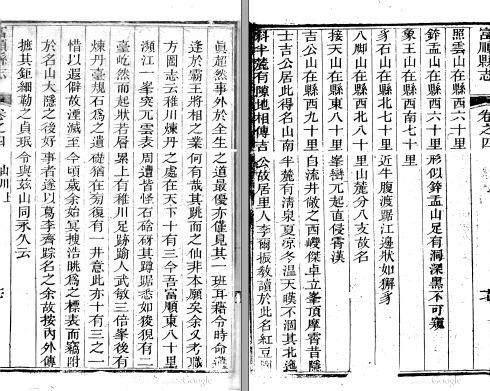 富順縣志 卷之四
照雲山在縣西六十里
鉾盂山在縣西六十里 形似鉾盂山足有洞深黑不可窺
象王山在縣西南七十里
豸山在縣西七十里 近牛腹渡踞江邊狀如獬豸
八脚山在縣西北八十里山麓分八支故名
接天山在縣東八十里 峯巒兀起直侵霄漢
吉公山在縣西九十里 自流井徼之西巘傑卓立峯頂摩霄昔隱
士吉公居此得名山南半麓有清泉夏凉冬溫天暵不涸其北迤
斜半麓有隙地相傳吉公故居里人李爾振敎讀於此名紅豆園
眞超然事外於全生之道最優亦僅見其一班耳藉令時命遭
逢於霸王將相之業何有哉其跳而之仙非本願矣余又考職
方圖志云稚川煉丹之處在天下十有三今吾富順東八十里
瀕江一峯突兀雲表周遭皆怪石硌砑其蹲踞悉如狻猊有二
臺屹然而起狀若層累上有稚川足跡踰人武敏三倍峯後有
煉丹臺規石為之遺礎猶在旁復有一井意此亦十有三之一
惜以遐僻故湮滅至今頃歲余始冥搜浩眺為之標表而竊附
於名山大隱之後好事者遂以葛李齊踪名之余故按內外傳
摭其鉅細勒之貞珉令與茲山同永久云
富順縣志 卷之四 山川上
Google
Google